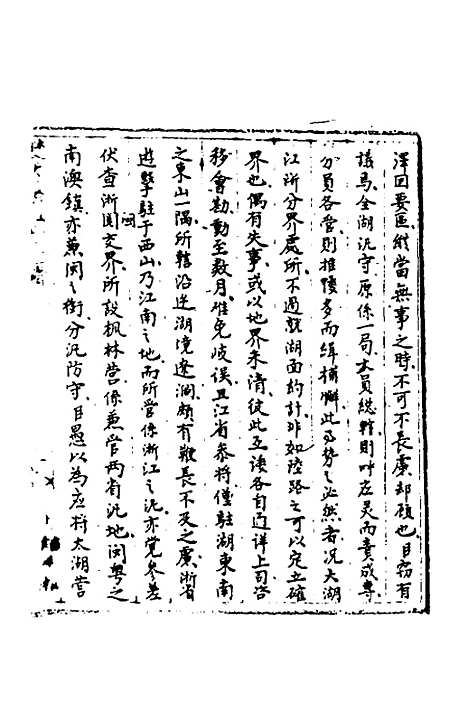 澤回要區縱當無事之時不可不長慮却顧也臣竊有
議焉全湖汛守原係一局大員總轄則呼应灵而責成專
分員各营則推諉多而緝捕懈此乃势之必然者况大湖
江浙分界處所不過就湖面約計非如陸路之可以定立確
界也偶有失事或以地界未清彼此互诿各自通详上司咨
移會勘動至数月雖免岐误且江省参将僅駐湖東南
之東山一隅所轄沿边湖境遼濶頗有鞭長不及之慮浙省
遊擊駐于西山乃江南之地而所管係浙江之汛亦觉参差
伏查浙閩交界所設枫林营係兼管两省汛地閩粤之
南澳鎮亦兼閩之衔分汛防守臣愚以為应将太湖营